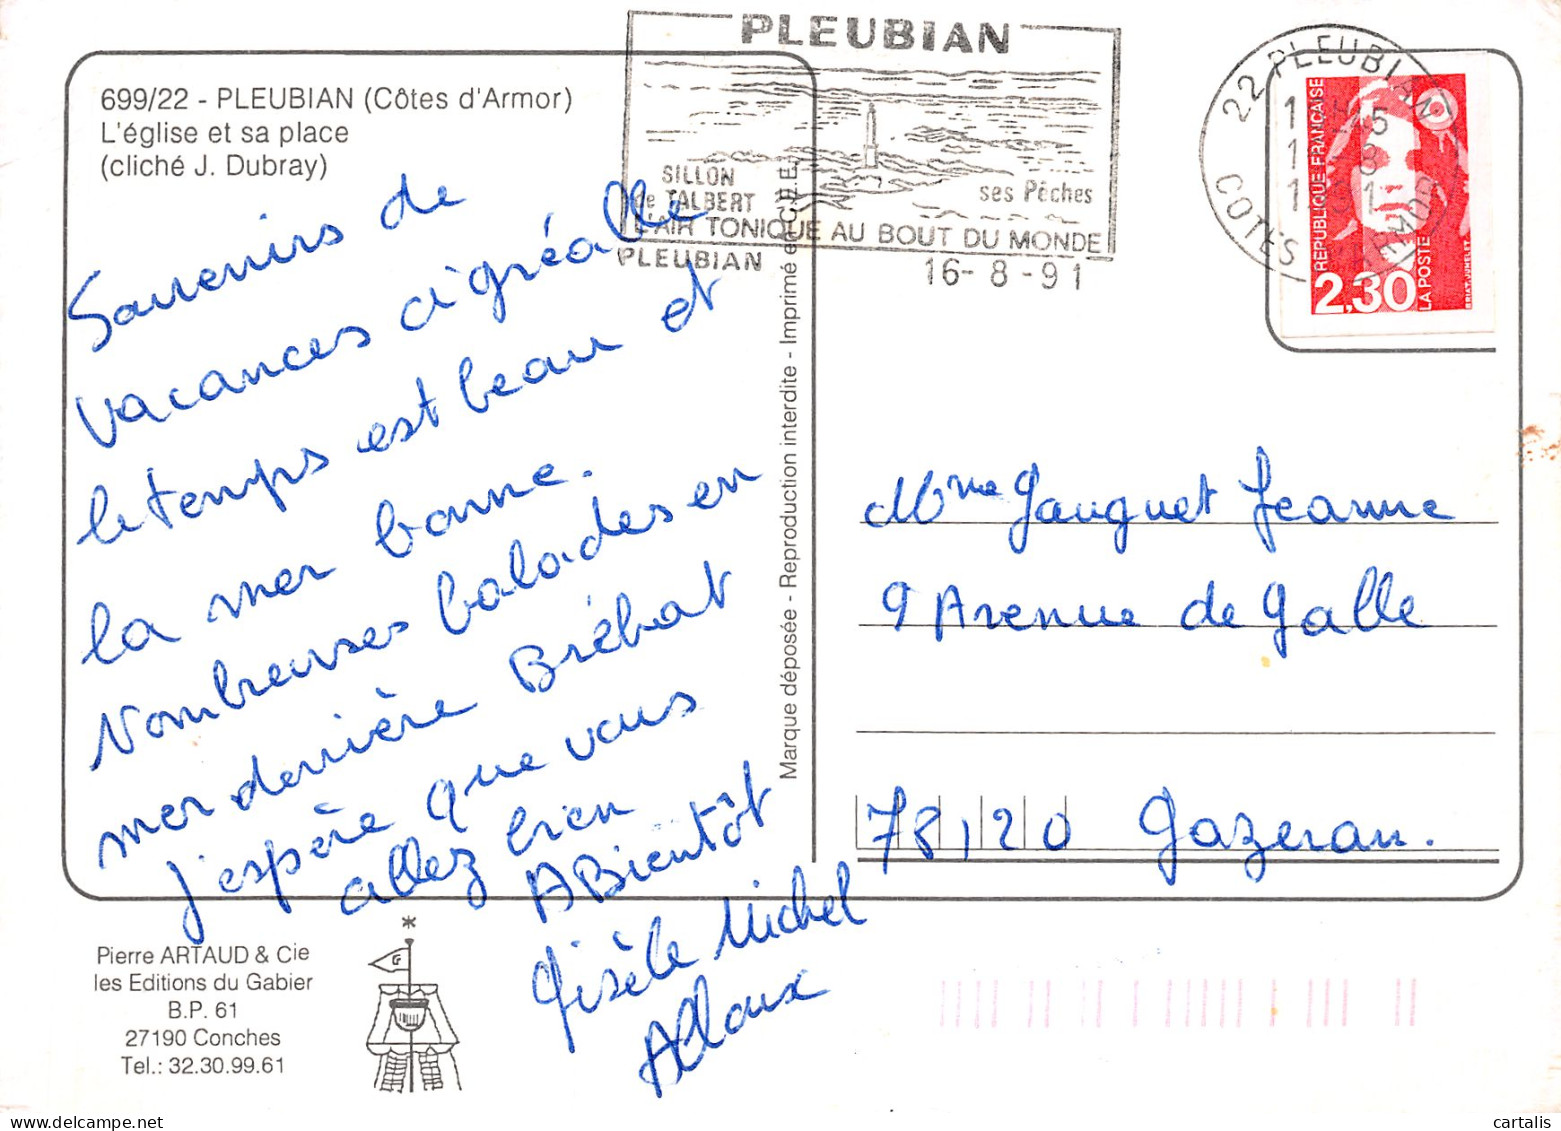 PLEUBIAN
SILLON
de TALBERT
ses Pêches
L'AIR TONIQUE AU BOUT DU MONDE
PLEUBIAN
16-8-91
22 PLEUBIAN
COTES D'ARMOR
REPUBLIQUE FRANÇAISE
LA POSTE
2,30
699/22 - PLEUBIAN (Côtes d'Armor)
L'église et sa place
(cliché J. Dubray)
Souvenirs de
vacances agréable
le temps est beau et
la mer bonne.
Nombreuses balades en
mer dernière Bréhat
J'espère que vous
allez bien
A Bientôt
Gisèle Michel
Marque déposée - Reproduction interdite - Imprimé en C.E.E.
Mme Gauguet Jeanne
9 Avenue de Galle
78120 Gazeran.
Pierre ARTAUD & Cie
les Editions du Gabier
B.P. 61
27190 Conches
Tel.: 32.30.99.61
cartalis